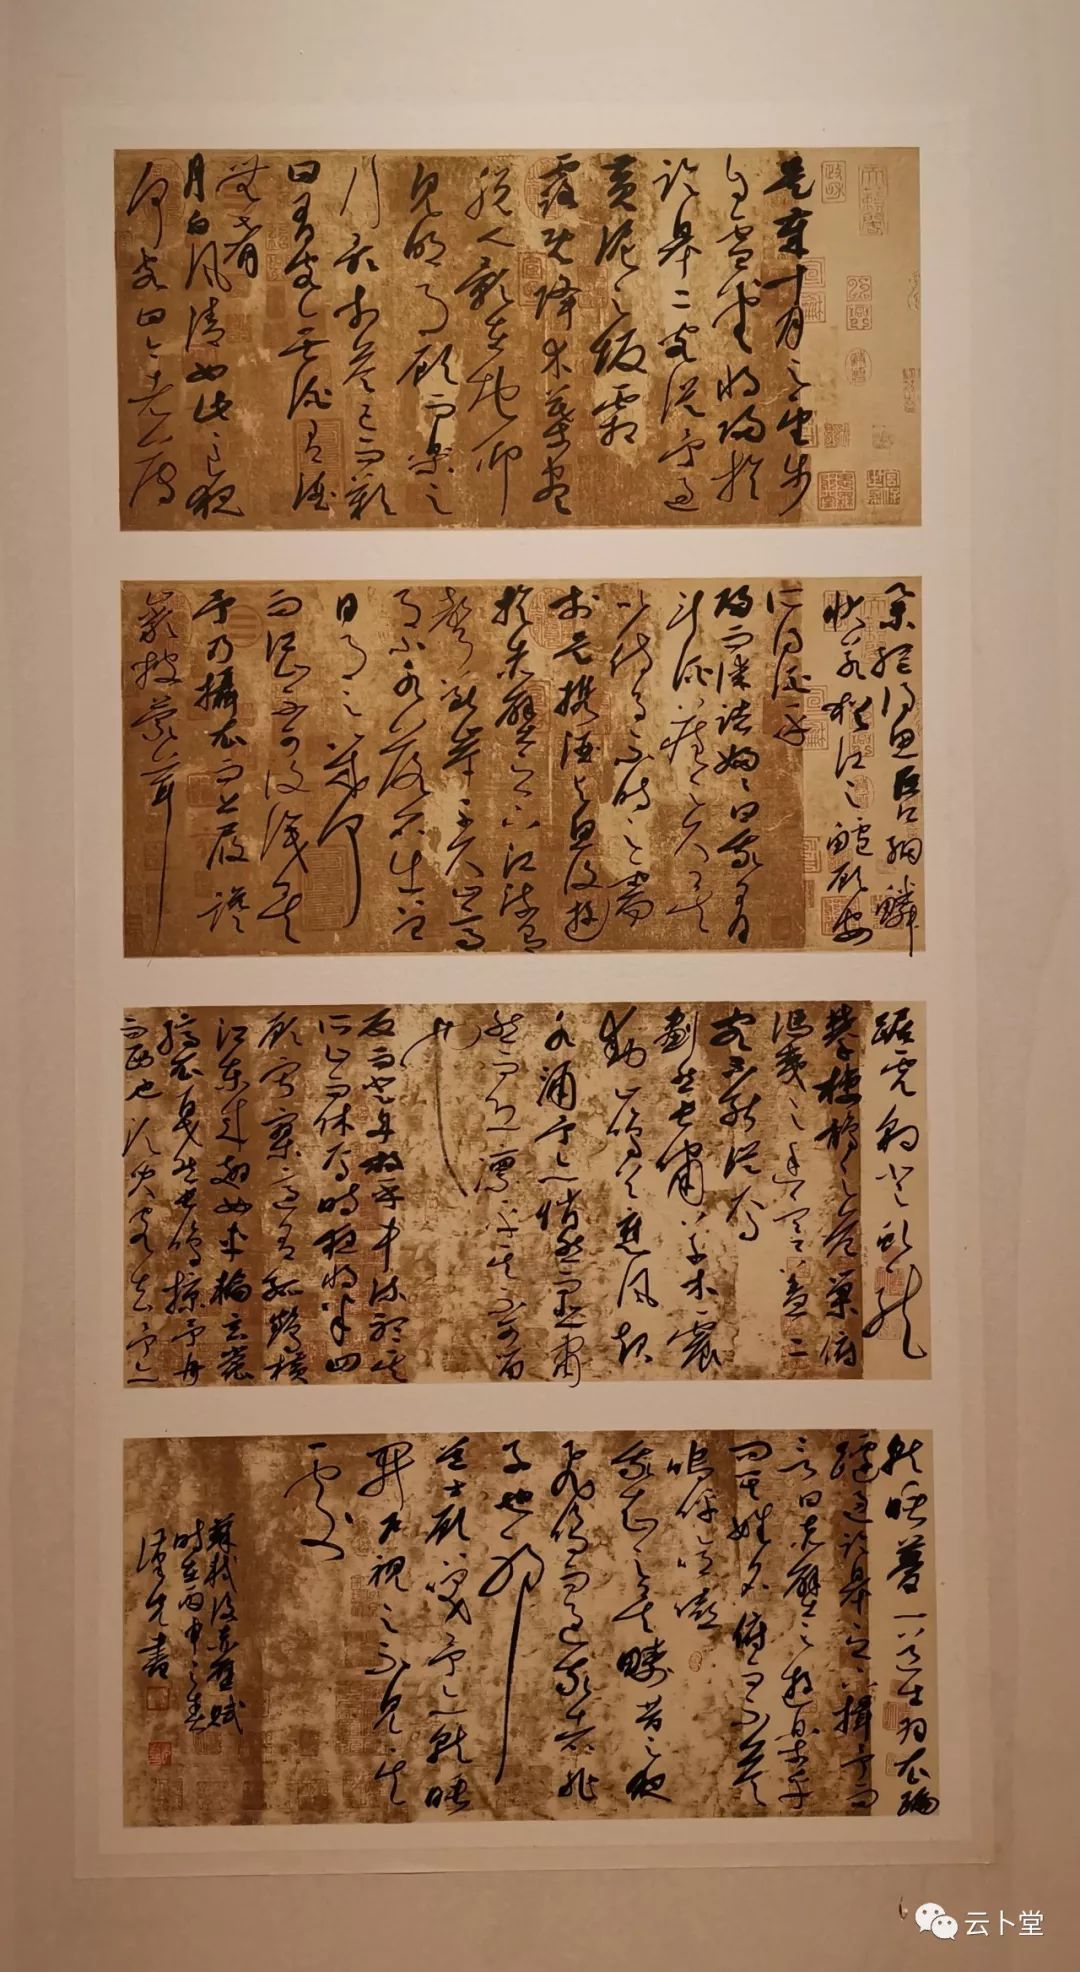 是歲十月之望步
自雪堂將歸於
臨皋二客從予過
黃泥之坂霜
露既降木葉盡
脫人影在地仰
見明月顧而樂之
行歌相答已而歎
曰有客無酒有酒
無肴
月白風清如此良夜
何客曰今者薄
網得魚巨口細鱗
狀若松江之鱸顧安
所得酒乎
歸而謀諸婦婦曰我有
斗酒藏之久矣
以待子不時之需
於是攜酒與魚復遊
於赤壁之下江流有
聲斷岸千尺山高
月小水落石出曾
日月之幾何
而江山不可復識矣
予乃攝衣而上履巉
巖披蒙茸
踞虎豹登虯龍
攀棲鶻之危巢俯
馮夷之幽宮蓋二
客不能從焉
劃然長嘯草木震
動山鳴谷應風起
水涌予亦悄然而悲肅
然而恐凜乎其不可留
也
反而登舟放乎中流聽其
所止而休焉時夜將半四
顧寂寥適有孤鶴橫
江東來翅如車輪玄裳
縞衣戛然長鳴掠予舟
而西也須臾客去予亦
就睡夢一道士羽衣蹁
躚過臨皋之下揖予而
言曰赤壁之遊樂乎
問其姓名俯而不答
嗚呼噫嘻
我知之矣疇昔之夜
飛鳴而過我者非
子也耶
道士顧笑予亦
開戶視之不見其
處
蘇軾後赤壁賦
時在丙申之春
書
云卜堂